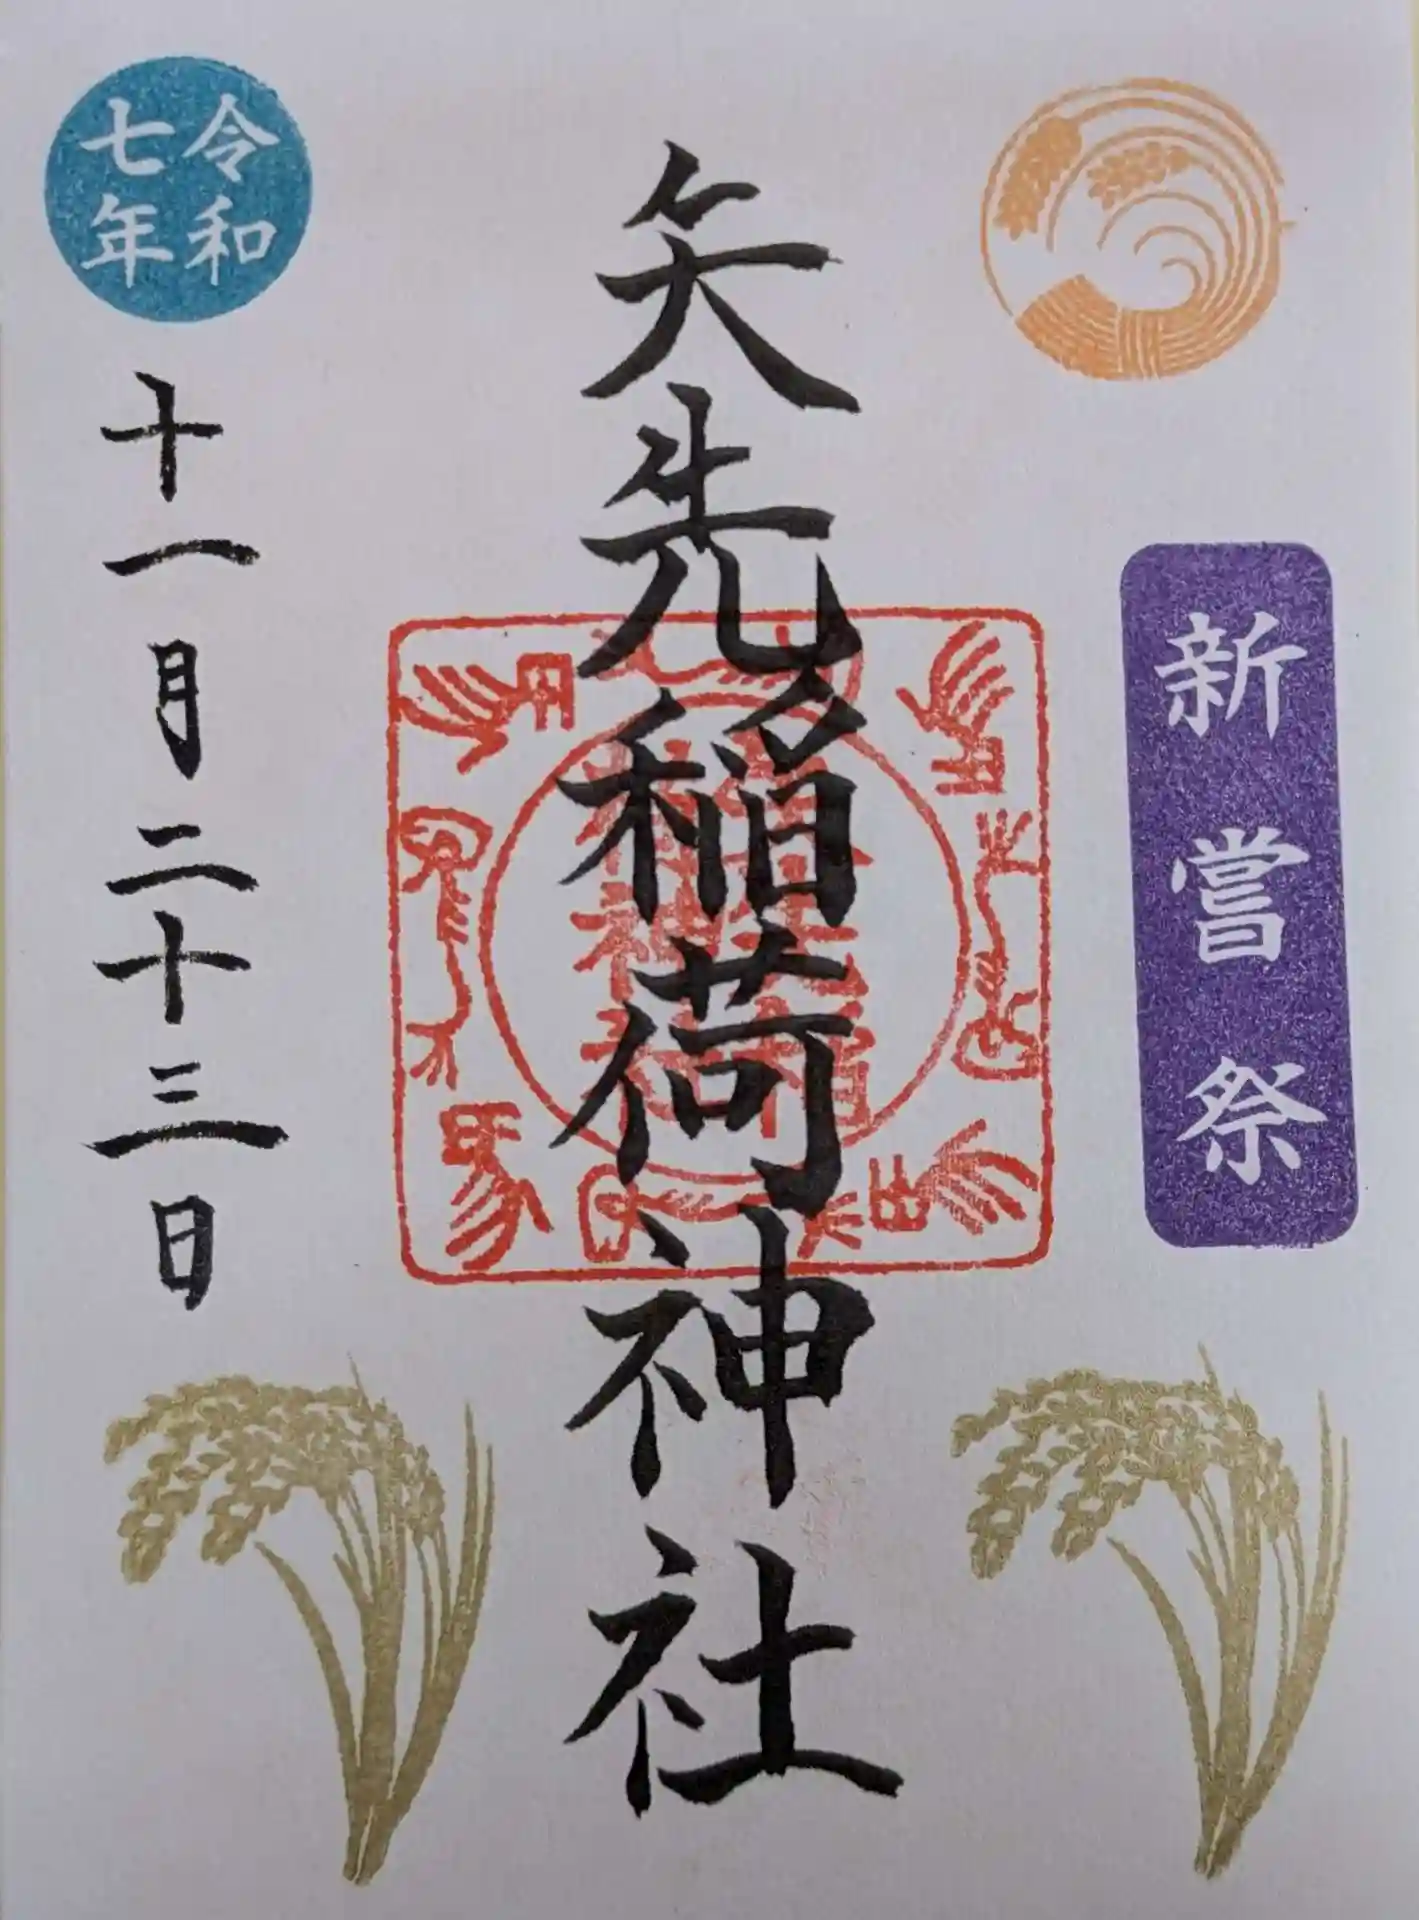 新嘗祭
矢先稲荷神社
令和
七年
十一月二十三日